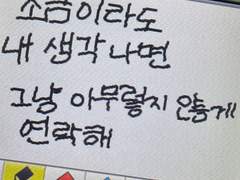 조금이라도
내 생각나면
그냥 아무렇지 않게
연락해